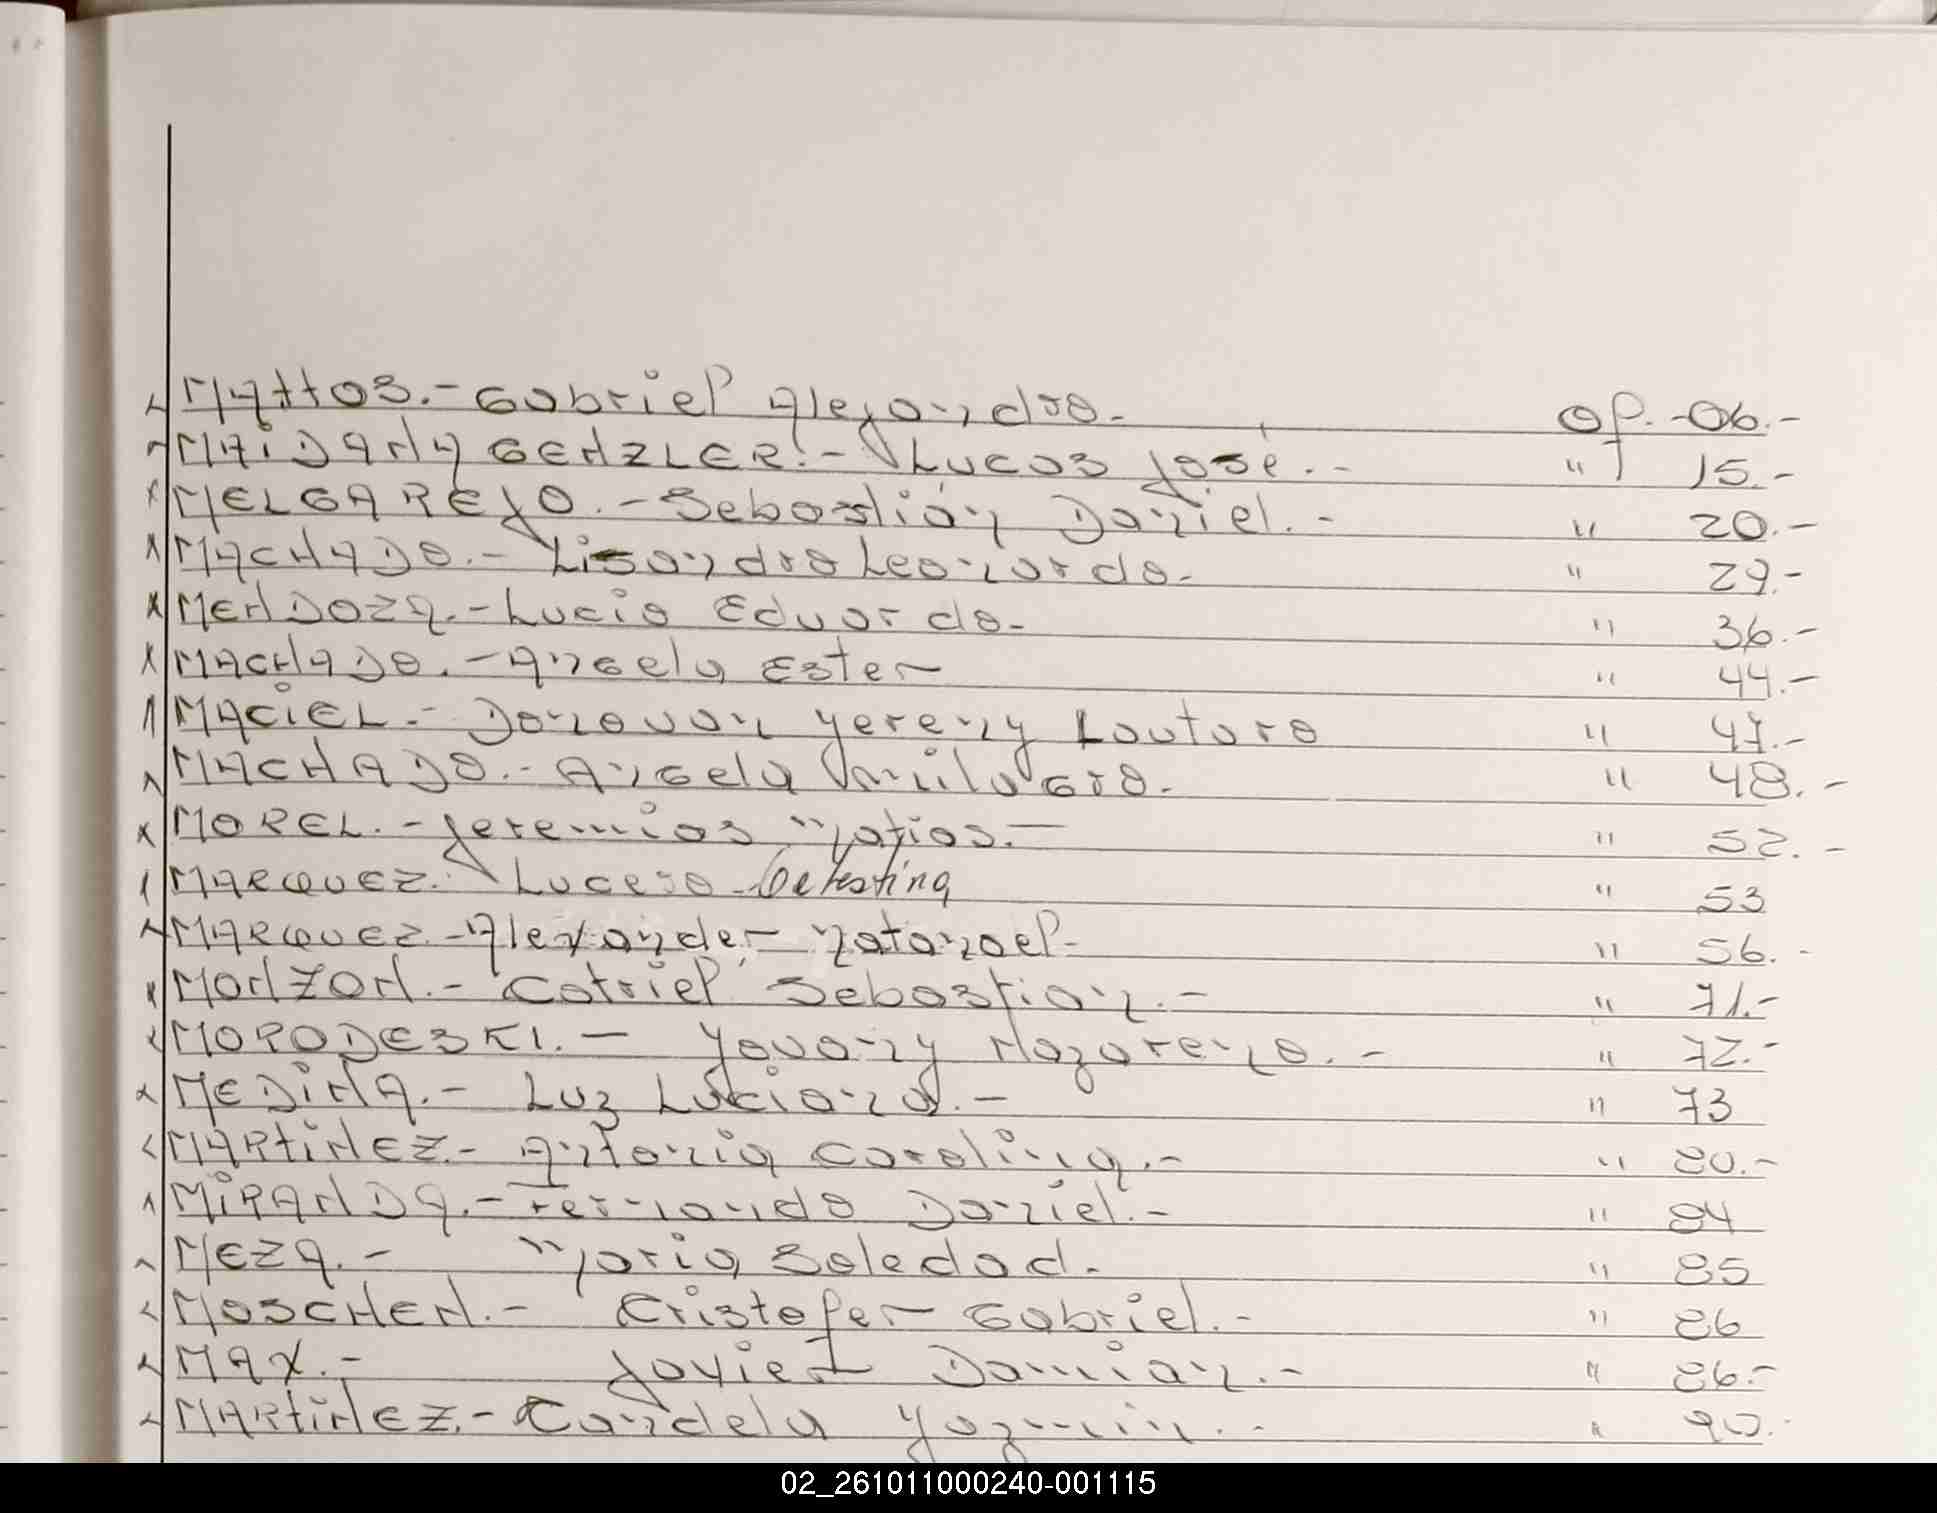 MAttOS.- Gabriel Alejandro.- OF.- 06.-
MAiDANA GENZLER.- Lucas José.- " 15.-
MELGAREJO.- Sebastián Daniel.- " 20.-
MACHADO.- Lisandro Leonardo.- " 29.-
MENDOZA.- Lucio Eduardo.- " 36.-
MACHADO.- Angela Ester " 44.-
MACiEL.- Donovan Yereny Lautaro " 47.-
MACHADO.- Angela Milagro.- " 48.-
MOREL.- Jeremias Matias.- " 52.-
MARQUEZ. Lucero Celestina " 53
MARQUEZ.- Alexander Natanael- " 56.-
MONZON.- Catriel Sebastian.- " 71.-
MORODESKI.- Yovany Nazareno.- " 72.-
MEDiNA.- Luz Luciana.- " 73
MARtiNEZ.- Antonia Carolina.- " 80.-
MiRANDA.- Fernando Daniel.- " 84
MEZA.- Maria Soledad.- " 85
MOSCHEN.- Cristofer Gabriel.- " 86
MAX.- Javier Damian.- " 86.-
MARtiNEZ.- Candela Yazmin.- " 90.
02_261011000240-001115